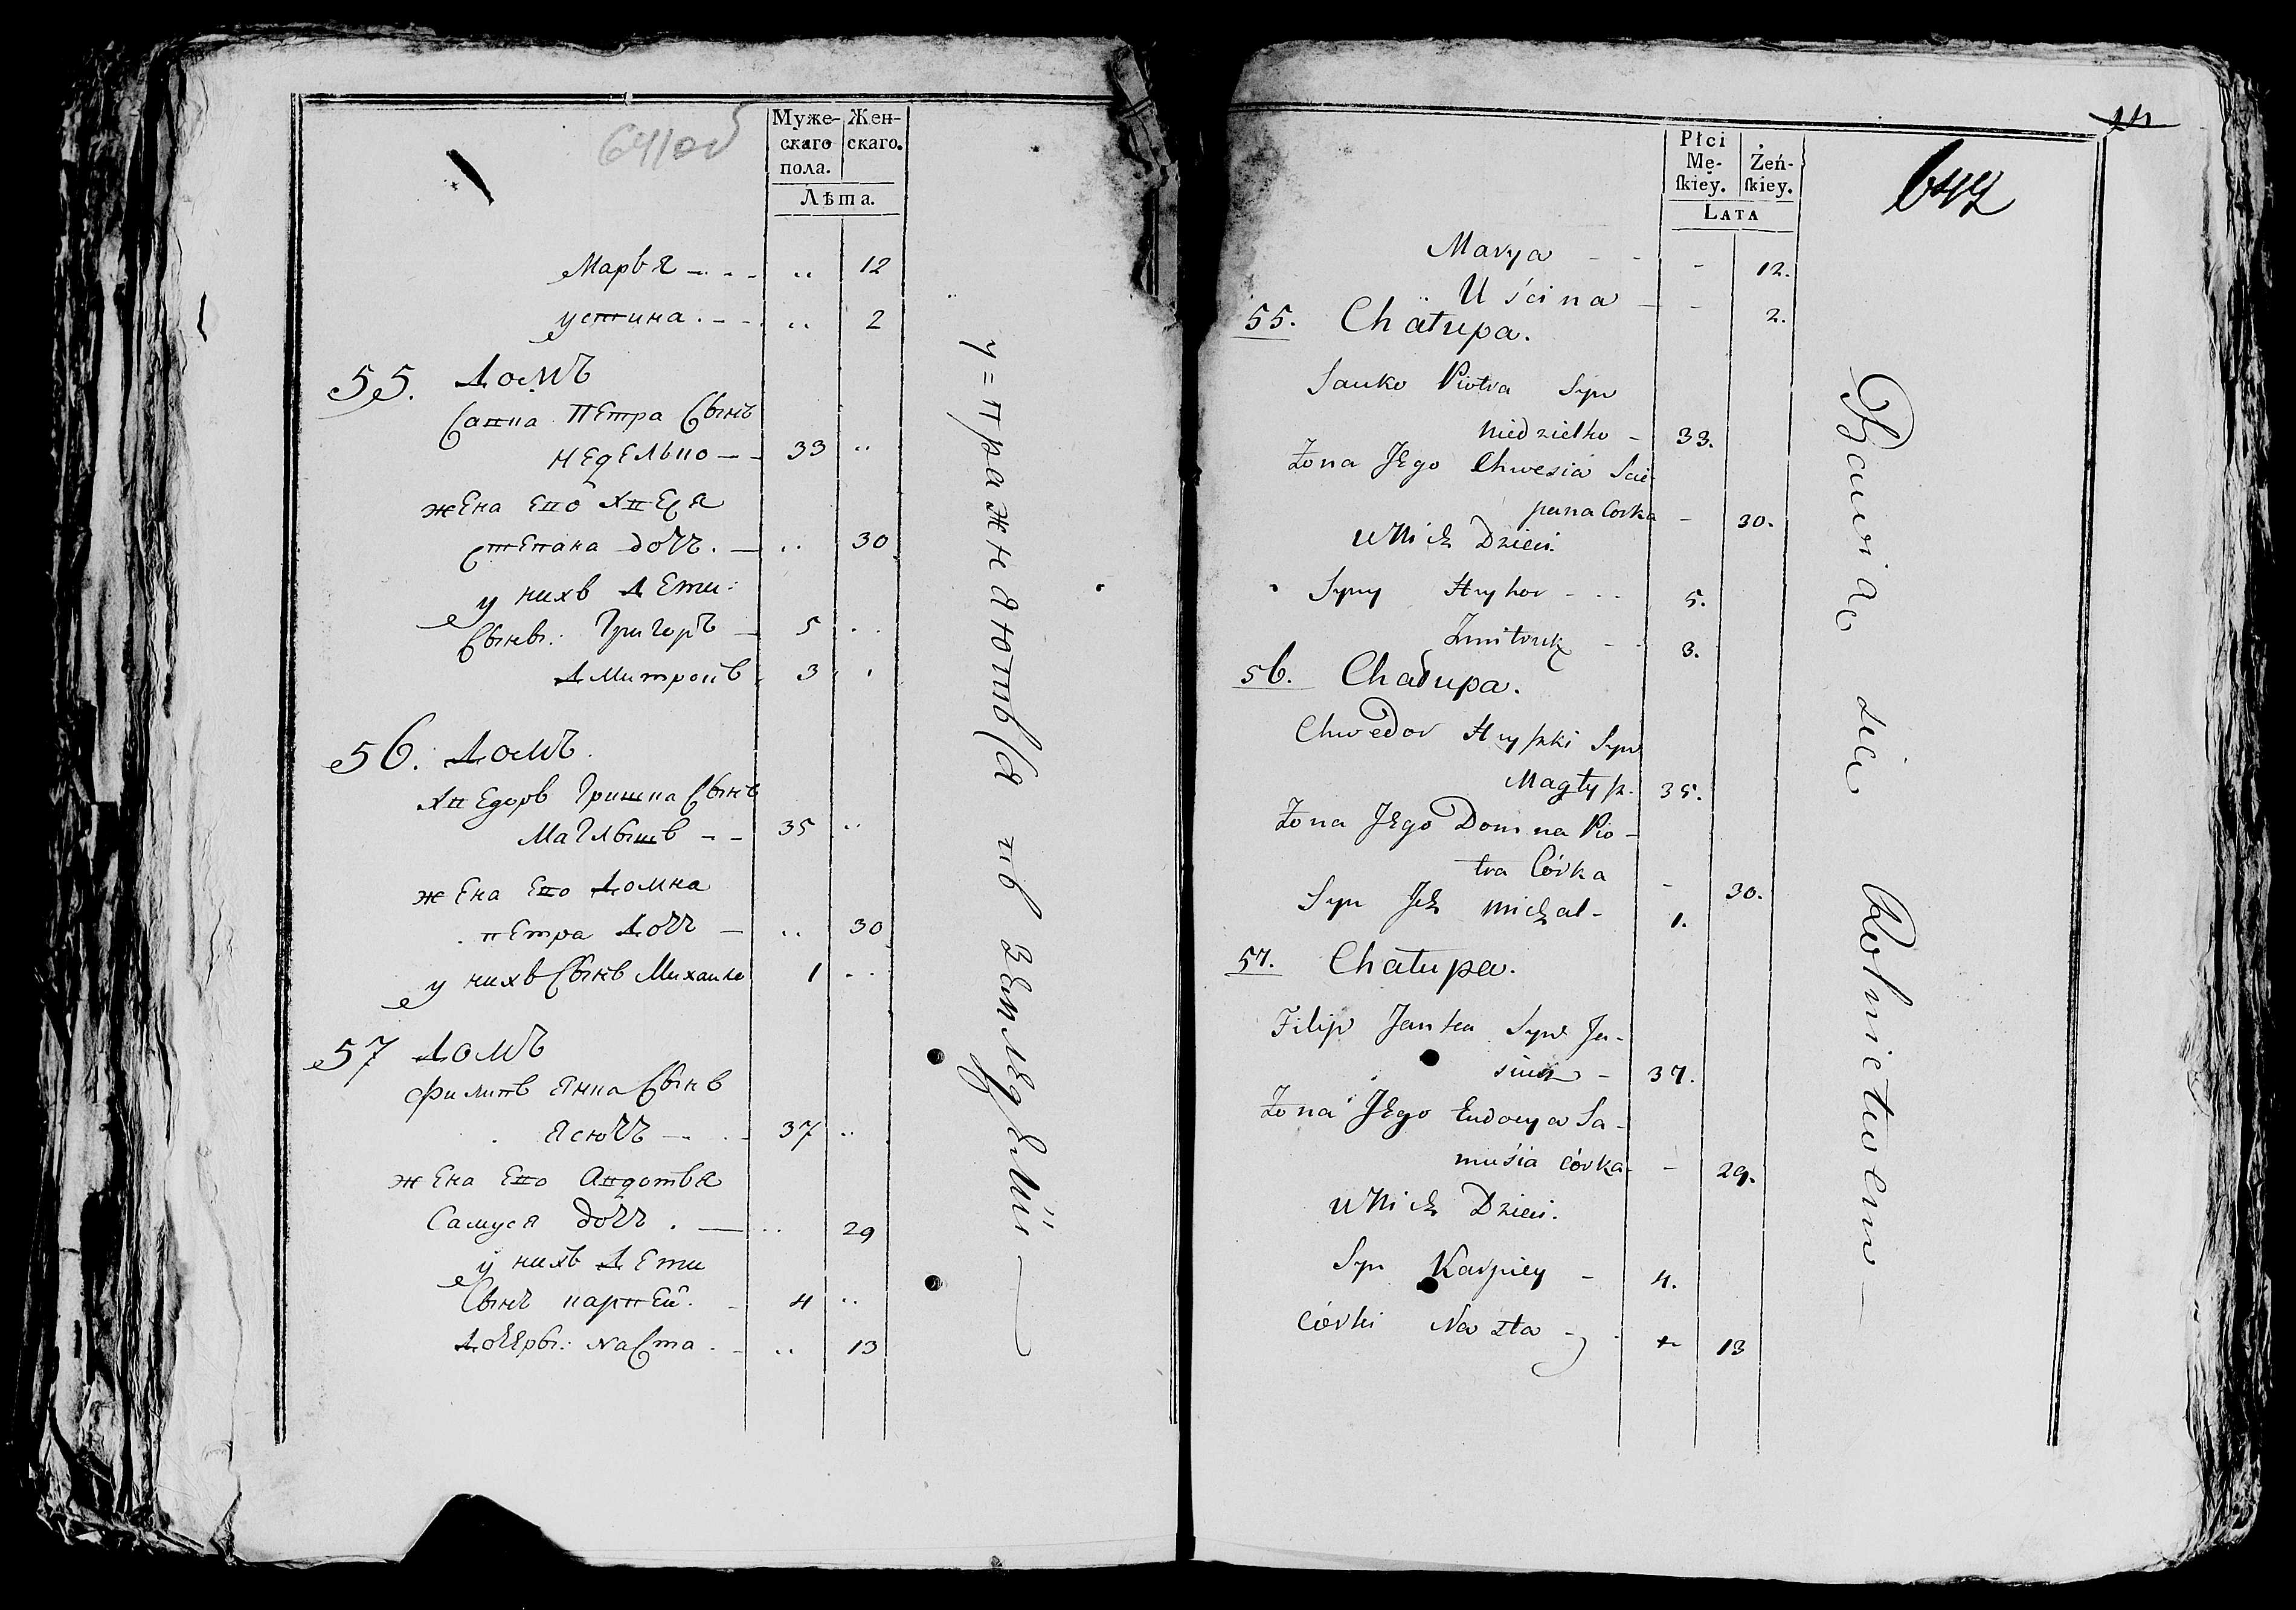 641об
Муже-
скаго
пола.
Жен-
скаго.
Лѣта.
Марья - - - .. 12
устина . - - .. 2
55. Домъ
Савка Петра Сынъ
неделько - - 33 ..
жена Ево Хвеся
степана дочь . - .. 30
у нихъ Дети:
Сынъı: Григоръ - 5 ..
Дмитрокъ . 3 .
56. Домъ.
Хведоръ Гришка Сынъ
Маглышъ - - 35 ..
жена Ево Домна
петра Дочь - .. 30
у нихъ Сынъ Михалко 1 ..
57 Домъ
Филипъ Янка Сынъ
Ясючъ - . - 37 ..
жена Ево Авдотья
Самуся дочь . - .. 29
у нихъ Дети
Сынъ карпей. - 4 ..
Дочеры: Наста . - .. 13
упражняются въ земледелии
Płci
Mę-
ſkiey.
Żeń-
ſkiey.
LATA
642
Marya - - - 12.
Uścina - - 2.
55. Chałupa.
Sauko Piotra Syn
Niedzielko - 33.
Żona Jego Chwesia Scie-
pana Corka - 30.
U Nich Dzieci.
Syny Hryhor - - 5.
Zmitruk - - 3.
56. Chałupa.
Chwedor Hryszki Syn
Magłysz. 35.
Żona Jego Domna Pio-
tra Córka - 30.
Syn Ich Michał - 1.
57. Chałupa.
Filip Janka Syn Ja-
siucz - 37.
Żona Jego Eudocya Sa-
musia córka - - 29.
U Nich Dzieci.
Syn Karpiey - 4.
Córki Nazta - - 13
Bawią się Rolnictwem